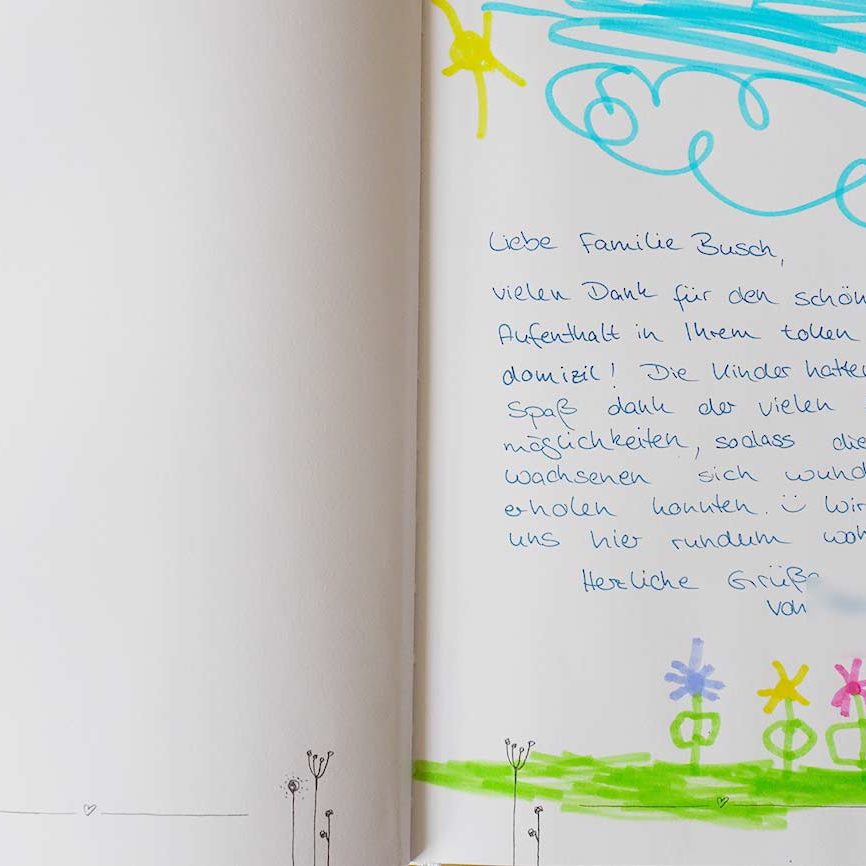 Liebe Familie Busch,
vielen Dank für den schön
Aufenthalt in Ihrem tollen
domizil! Die Kinder hatte
Spaß dank der vielen
möglichkeiten, sodass die
wachsenen sich wund
erholen konnten. ☺ Wir
uns hier rundum woh
Herzliche Grüße
von